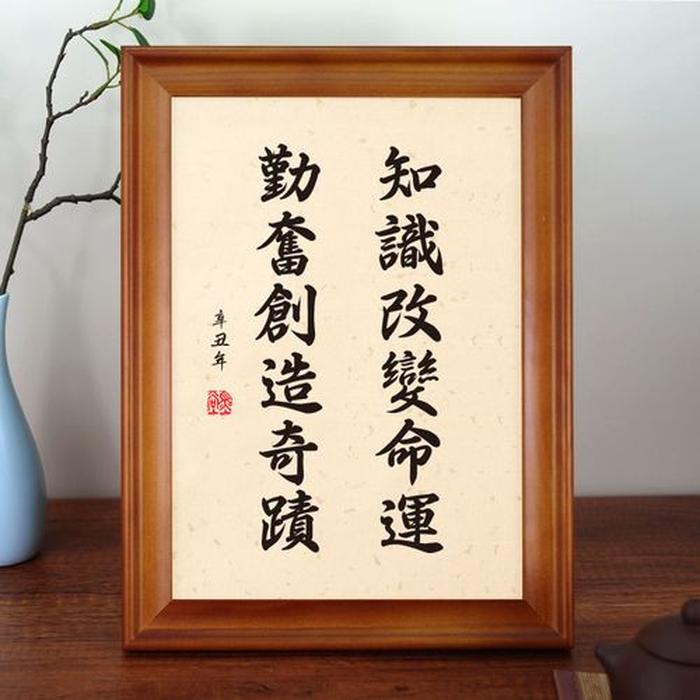 知識改變命運
勤奮創造奇蹟
辛丑年